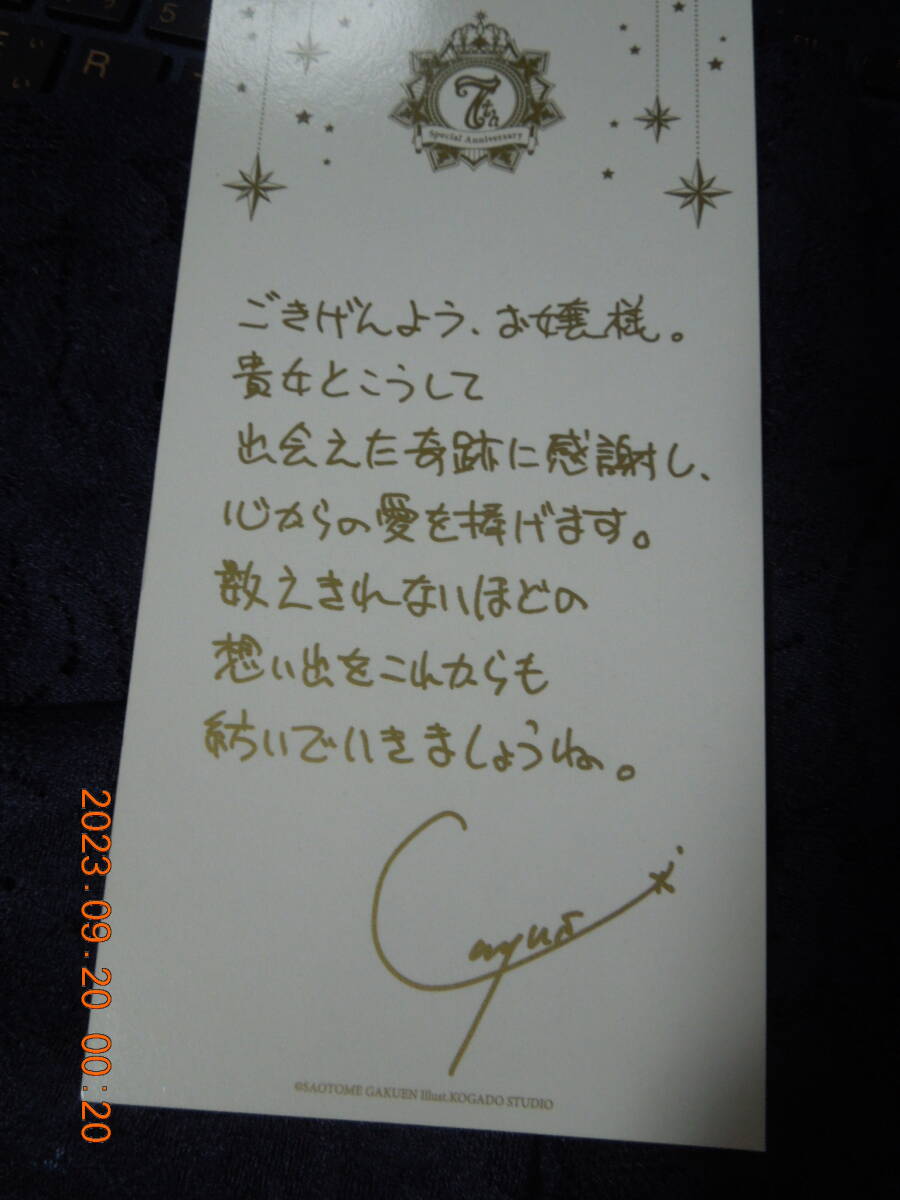 5
R
い
い
7th
Special Anniversary
ごきげんよう、お嬢様。
貴女とこうして
出会えた奇跡に感謝し、
心からの愛を捧げます。
数えきれないほどの
想い出をこれからも
紡いでいきましょうね。
©SAOTOME GAKUEN Illust.KOGADO STUDIO
2023.09.20 00:20